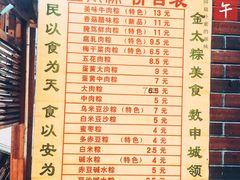 价目表
美味牛肉粽（特色） 13 元
香菇腊味粽（新品） 11 元
腌笃鲜肉粽（特色） 11 元
腐乳肉粽（特色） 9.5 元
梅干菜肉粽（特色） 9.5 元
五花肉粽 8.5 元
蛋黄大肉粽 9 元
蛋黄中肉粽 元
大肉粽 6.5 元
中肉粽 5 元
乌米豆沙粽（特色） 5 元
白米豆沙粽 元
蜜枣粽 4 元
多赤豆粽（特色） 元
白米粽 元
碱水粽（特色） 元
赤豆碱水粽 元
民以食为天
食以安为
金太粽美食
数申城领
午